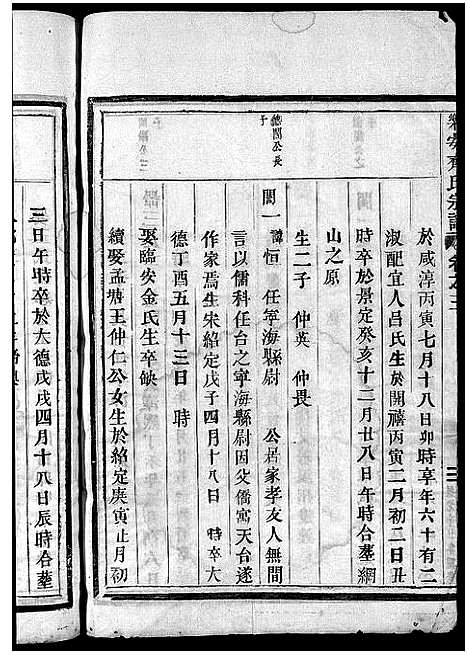 齊氏宗譜 卷之三
於咸淳丙寅七月十八日卯時享年六十有二
淑配宜人呂氏生於開禧丙寅二月初二日丑
時卒於景定癸亥十二月廿八日午時合塟綱
山之原
生二子 仲英 仲畏
德閏公長子
閏一 諱恒 任寧海縣尉 公居家孝友人無間
言以儒科任台之寧海縣尉因父僑寓天台遂
作家焉生宋紹定戊子四月十八日 時卒大
德丁酉五月十三日 時
娶臨安金氏生卒缺
續娶孟塘王仲仁公女生於紹定庚寅正月初
三日午時卒於大德戊戌四月十八日辰時合塟